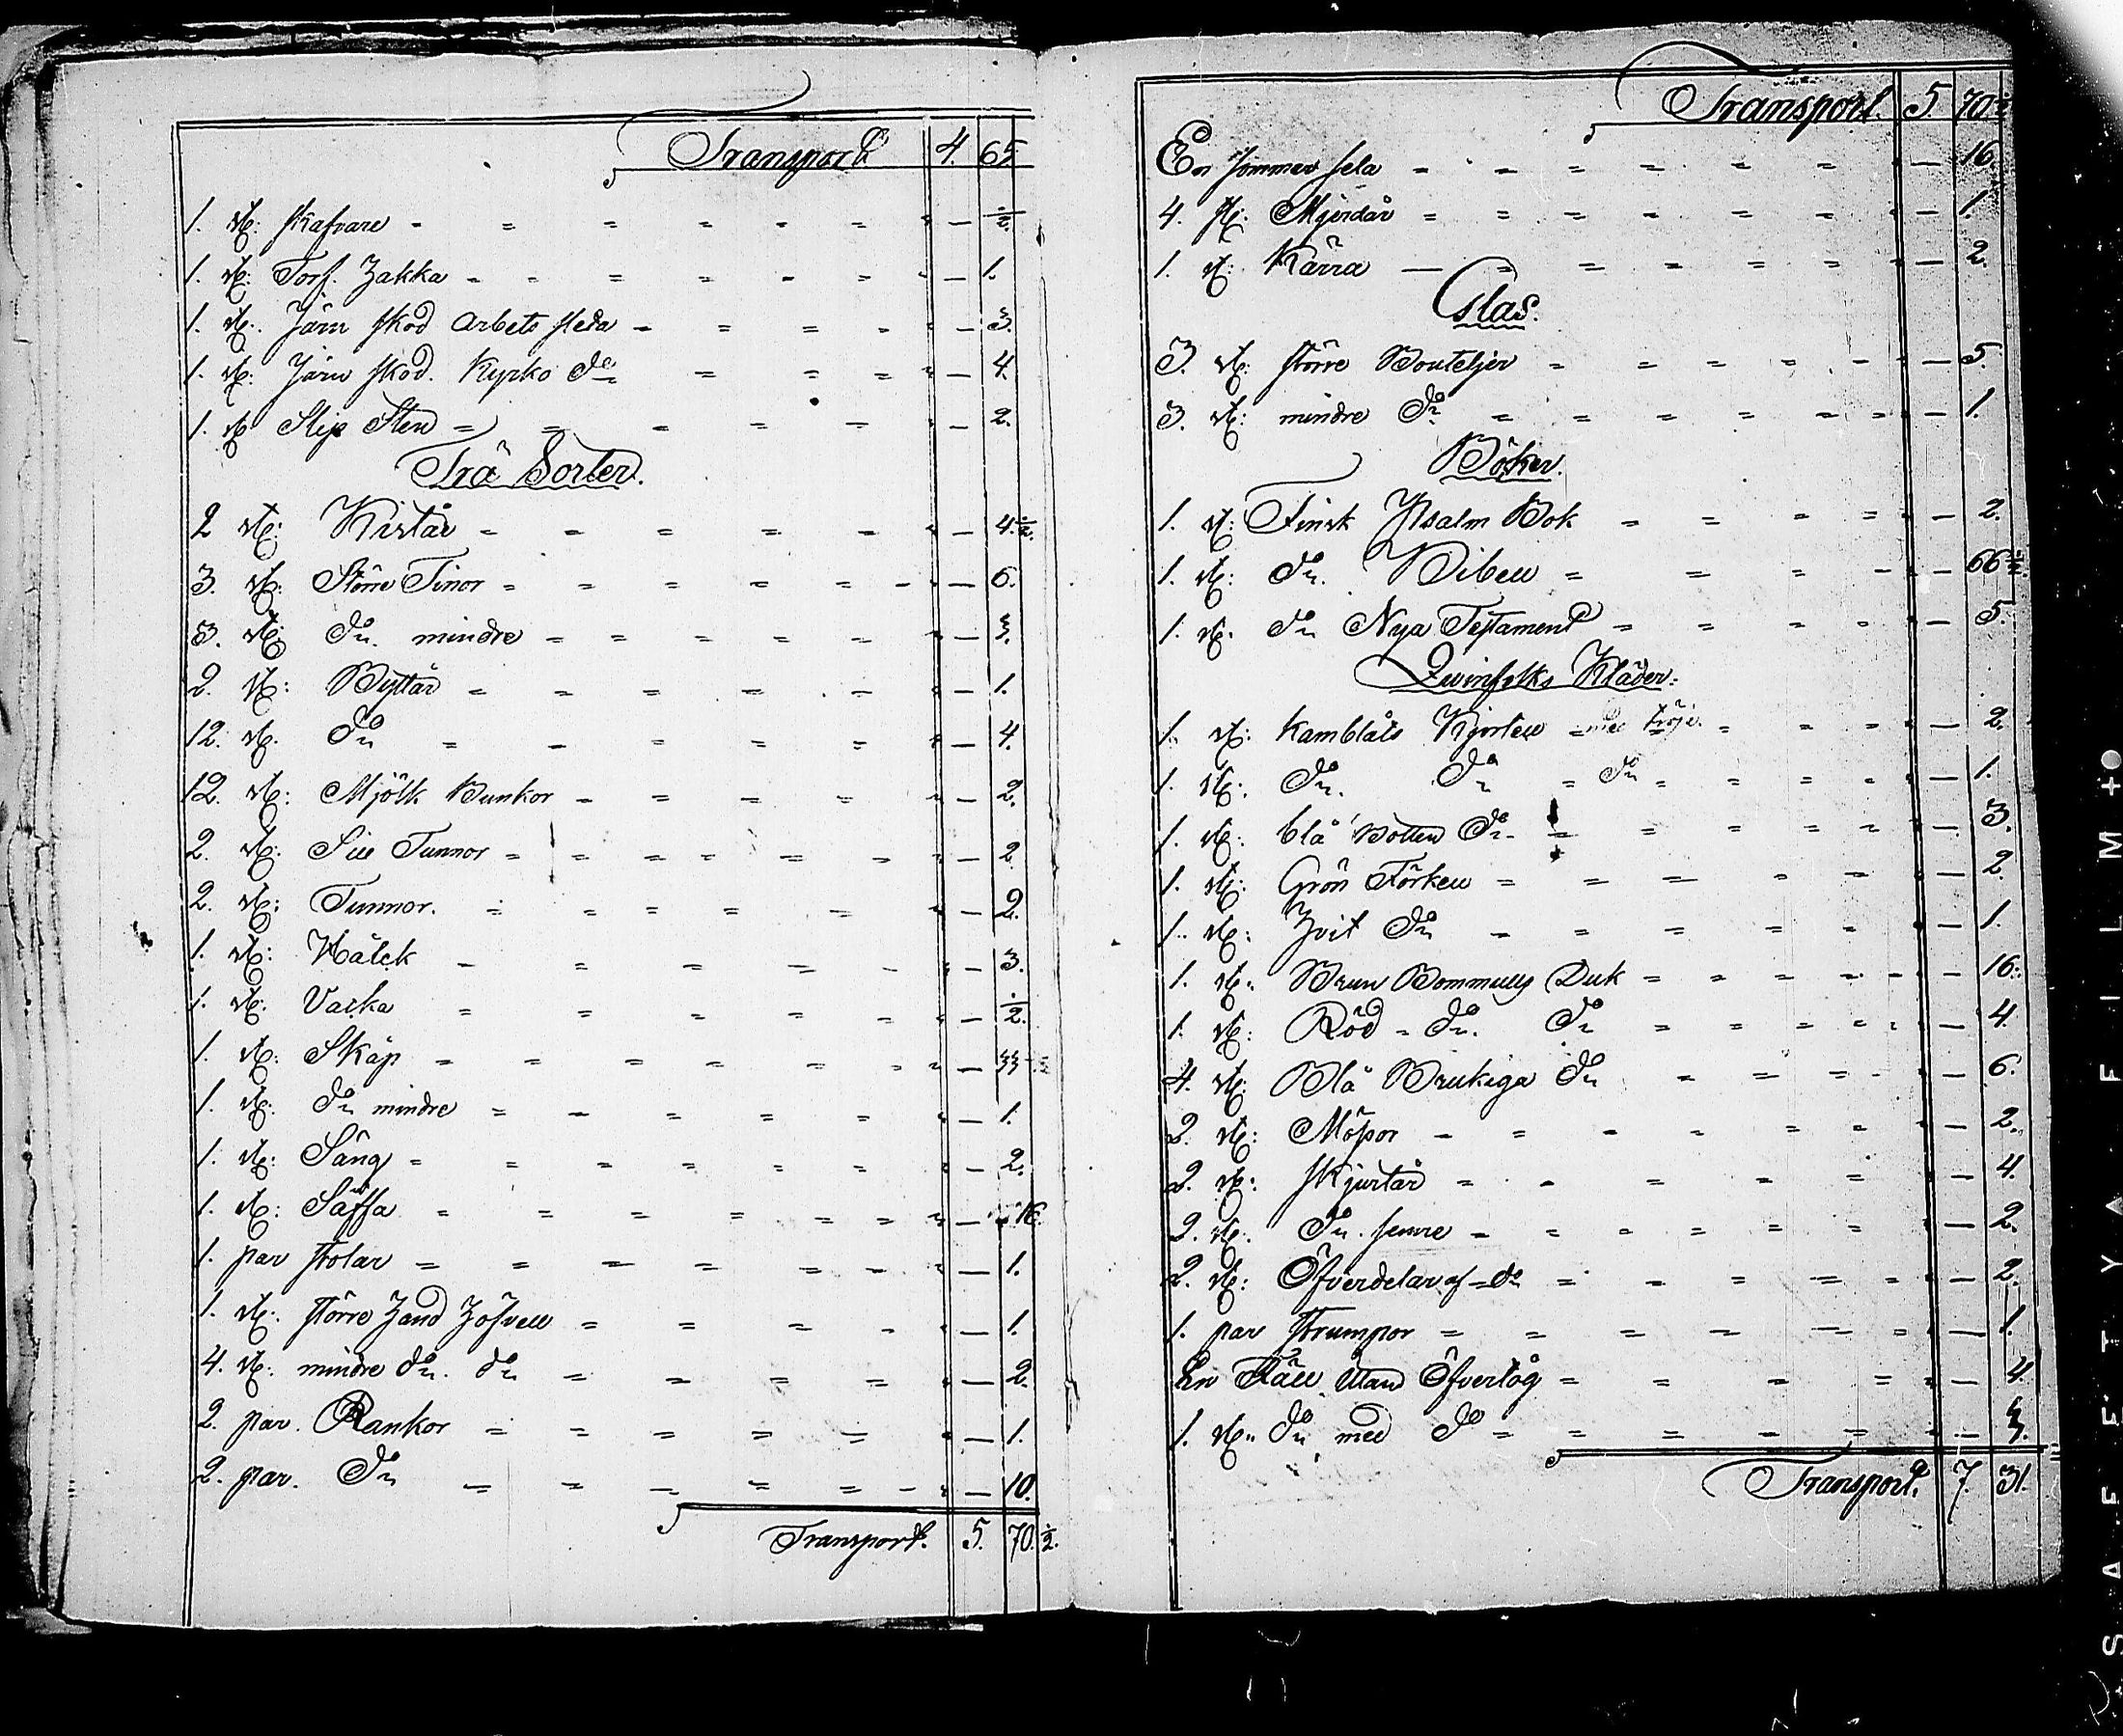 Transport 4. 65.
1. st: skafvare - - - - - - - — ½
1. st: Torf. Hakka - - - - - - - — 1.
1. st: Järn skod Arbets släda - - - - - — 3.
1. st: Järn skod. Kyrko do - - - - — 4.
1. st Slip Sten - - - - - - — 2.
Trä Sorter.
2 st: Kistår - - - - - - — 4.½.
3. st: Större Tinor - - - - - - — 6.
3. st: do mindre - - - - - - — 3.
2. st: Byttår - - - - - - — 1.
12. st. do - - - - - - — 4.
12. st: Mjölk Bunkor - - - - - — 2.
2. st: Sill Tunnor - - - - - - — 2
2. st: Tunnor. - - - - - - — 2.
1. st: Kälck - - - - - - — 3.
1. st: Vacka - - - - - - — ½.
1. st: Skåp - - - - - - — 33
1. st: do mindre - - - - - - — 1.
1. st: Säng - - - - - - - — 2.
1. st: Säffa - - - - - - - — 16.
1. par stolar - - - - - - - — 1.
1. st: större Hand - - - - - — 1.
4. st: mindre do. do - - - - - — 2.
2. par. Rankor - - - - - - — 1.
2. par. do - - - - - - — 10.
Transport. 5. 70.½.
Transport. 5. 70½
En sommar sela - - - - - - - — 16.
4. st: Mjerdår - - - - - - - — 1.
1. st: Kärra — - - - - - - — 2.
Glas.
3. st: större Bouteljer - - - - - - — 5.
3. st: mindre do - - - - - - — 1.
Böker.
1. st: Finsk Psalm Bok - - - - - — 2.
1. st: do. Bibell - - - - - — 66½.
1. st. do Nya Testament - - - - - — 5.
Qvinfolks Kläder:
1. st: Kamblåts Kjortell - med tröje. - - - - — 2.
1. st: do. do - do - - - - - — 1.
1. st: blå Botten do - - - - - - — 3.
1. st: Grön Förkell - - - - - - — 2.
1. st: Hvit do - - - - - - — 1.
1. st: Brun Bommulls Duk - - - - - - — 16.
1. st: Röd - do. do - - - - - — 4.
4. st: Blå Brukiga do - - - - — 6.
2. st: Mössor - - - - - - - — 2.
2. st: skjurtår - - - - - - — 4.
2. st: do. semre - - - - - - — 2.
2. st: Öfverdelar af do - - - - - — 2.
1. par strumpor - - - - - - — 1.
En Fäll utan Öfvertåg - - - - - — 4.
1. st: do med do - - - - - - — 3.
Transport. 7. 31.
SAFETY FILM